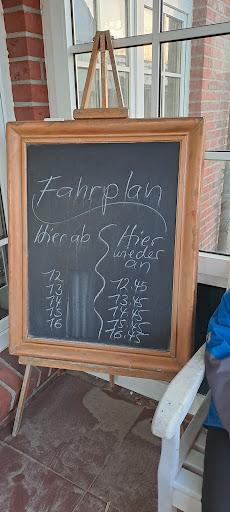 Fahrplan
Hier ab
Hier
wieder
an
12
13
14
15
16
12.45
13.45
14.45
15.45
16.45